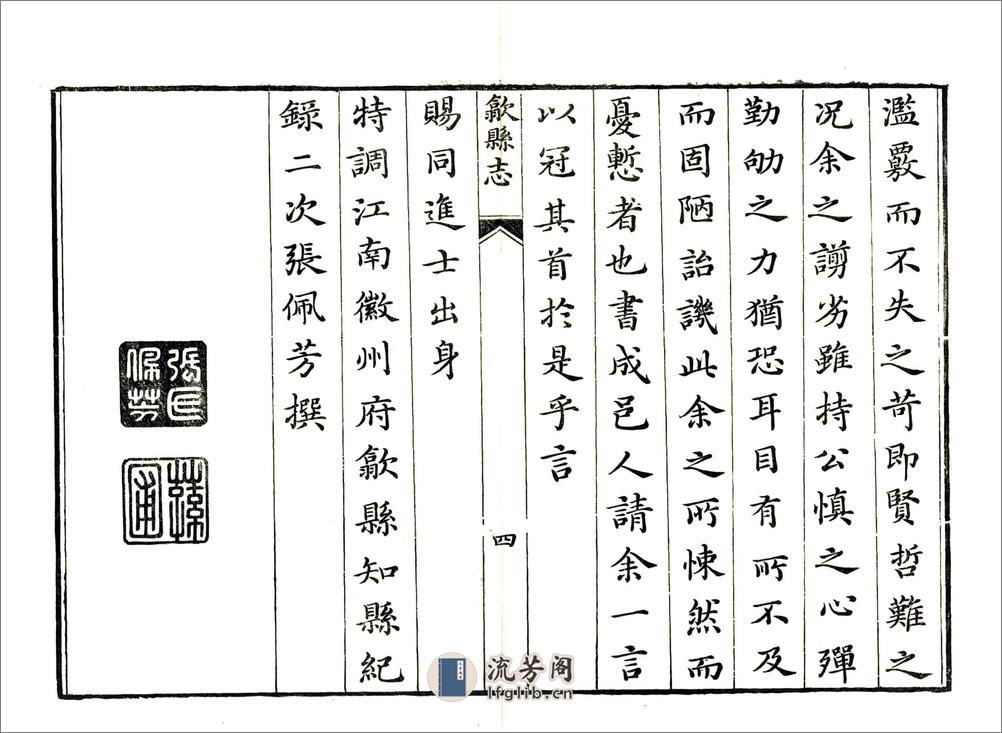 濫覈而不失之苛即賢哲難之
况余之謭劣雖持公慎之心殫
勤劬之力猶恐耳目有所不及
而固陋詒譏此余之所悚然而
憂慙者也書成邑人請余一言
以冠其首於是乎言
歙縣志
四
賜同進士出身
特調江南徽州府歙縣知縣紀
錄二次張佩芳撰
張佩芳印
蓀圃
流芳阁
lfglib.cn